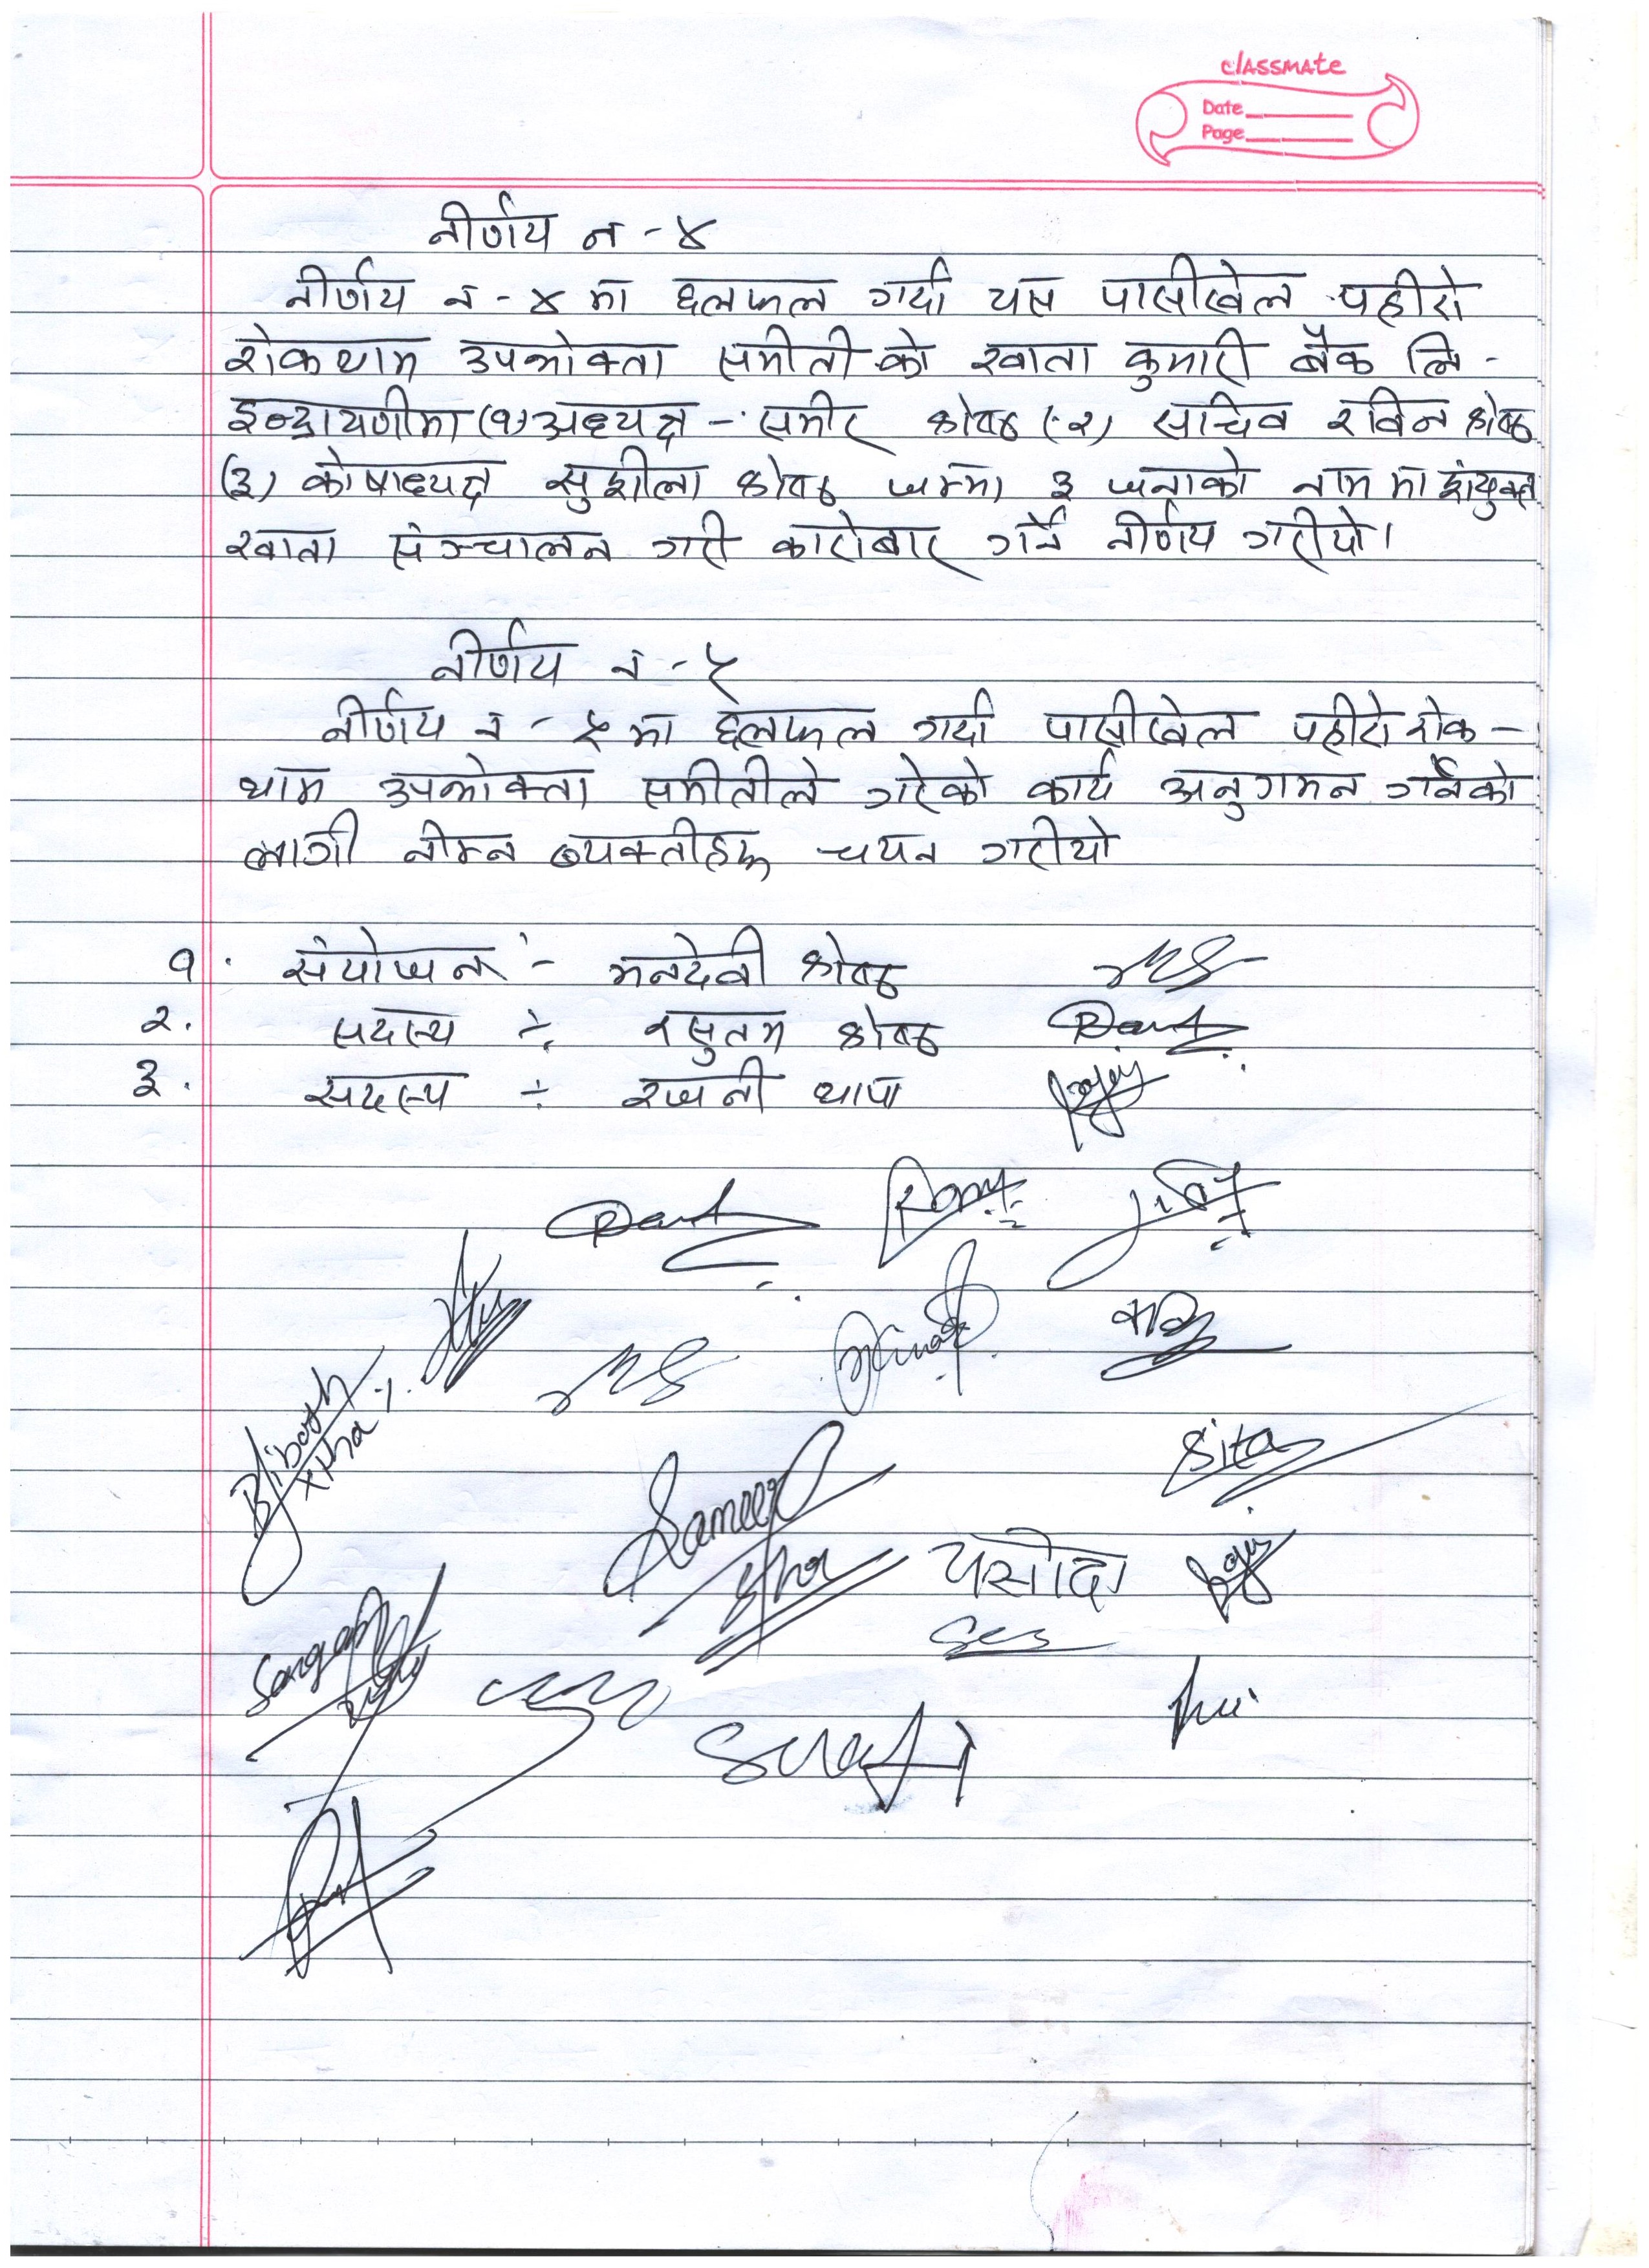 classmate
Date
Page
नीर्णय न - ४
नीर्णय न - ४ मा छलफल गर्दा यस पासीखेल पहीरो
रोकथाम उपभोक्ता समीतीको खाता कुमारी बैंक लि -
इन्द्रायणीमा (१) अध्यक्ष - समीर श्रेष्ठ (२) सचिव रविन श्रेष्ठ
(३) कोषाध्यक्ष सुशीला श्रेष्ठ जम्मा ३ जनाको नाम मा संयुक्त
खाता संञ्चालन गरी कारोबार गर्ने नीर्णय गरीयो।
नीर्णय नं - ५
नीर्णय नं - ५ मा छलफल गर्दा पासीखेल पहीरो रोक -
थाम उपभोक्ता समीतीले गरेको कार्य अनुगमन गर्नेको
लागी नीम्न व्यक्तीहरू चयन गरीयो
१. संयोजक :- मनदेवी श्रेष्ठ
२. सदस्य ÷ रसुतम श्रेष्ठ
३. सदस्य ÷ रजनी थापा
Sita
Sameer
यसोदा